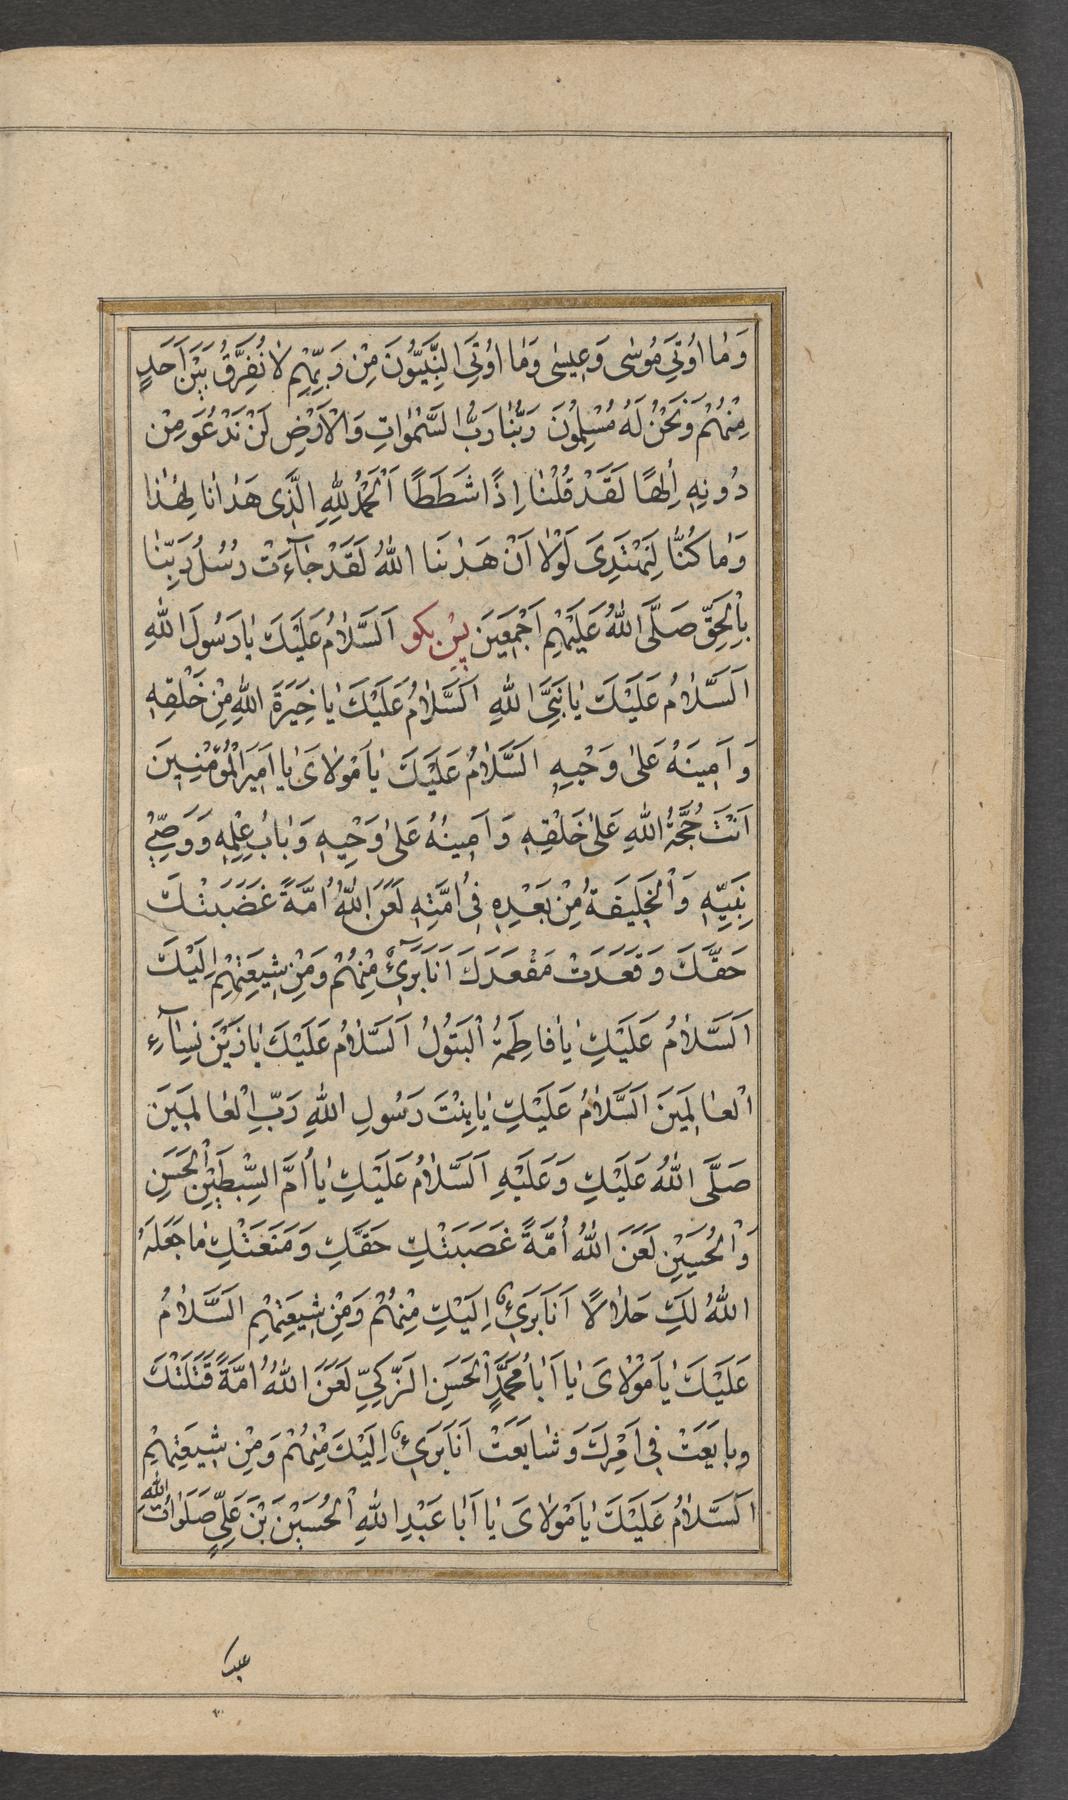 وَمٰا اُوتِيَ مُوسٰى وَعِيسٰى وَمٰا اُوتِيَ النَّبِيُّونَ مِنْ رَبِّهِمْ لٰا نُفَرِّقُ بَيْنَ اَحَدٍ
مِنْهُمْ وَنَحْنُ لَهُ مُسْلِمُونَ رَبُّنٰا رَبُّ السَّمٰوٰاتِ وَالْاَرْضِ لَنْ نَدْعُوَ مِنْ
دُونِهِ اِلٰهًا لَقَدْ قُلْنٰا اِذًا شَطَطًا اَلْحَمْدُ لِلّٰهِ الَّذِى هَدٰانٰا لِهٰذٰا
وَمٰا كُنّٰا لِنَهْتَدِىَ لَوْلٰا اَنْ هَدٰىنَا اللّٰهُ لَقَدْ جٰآءَتْ رُسُلُ رَبِّنٰا
بِالْحَقِّ صَلَّى اللّٰهُ عَلَيْهِمْ اَجْمَعِينَ پس بكو اَلسَّلٰامُ عَلَيْكَ يٰا رَسُولَ اللّٰهِ
اَلسَّلٰامُ عَلَيْكَ يٰا نَبِيَّ اللّٰهِ اَلسَّلٰامُ عَلَيْكَ يٰا خِيَرَةَ اللّٰهِ مِنْ خَلْقِهِ
وَاَمِينَهُ عَلٰى وَحْيِهِ اَلسَّلٰامُ عَلَيْكَ يٰا مَوْلٰاىَ يٰا اَمِيرَ الْمُؤْمِنِينَ
اَنْتَ حُجَّةُ اللّٰهِ عَلٰى خَلْقِهِ وَاَمِينُهُ عَلٰى وَحْيِهِ وَبٰابُ عِلْمِهِ وَوَصِيُّ
نَبِيِّهِ وَالْخَلِيفَةُ مِنْ بَعْدِهِ فِى اُمَّتِهِ لَعَنَ اللّٰهُ اُمَّةً غَضَبَتْكَ
حَقَّكَ وَقَعَدَتْ مَقْعَدَكَ اَنَا بَرِىٓءٌ مِنْهُمْ وَمِنْ شِيعَتِهِمْ اِلَيْكَ
اَلسَّلٰامُ عَلَيْكِ يٰا فٰاطِمَةُ الْبَتُولُ اَلسَّلٰامُ عَلَيْكِ يٰا زَيْنَ نِسٰآءِ
الْعٰالَمِينَ اَلسَّلٰامُ عَلَيْكِ يٰا بِنْتَ رَسُولِ اللّٰهِ رَبِّ الْعٰالَمِينَ
صَلَّى اللّٰهُ عَلَيْكِ وَعَلَيْهِ اَلسَّلٰامُ عَلَيْكِ يٰا اُمَّ السِّبْطَيْنِ الْحَسَنِ
وَالْحُسَيْنِ لَعَنَ اللّٰهُ اُمَّةً غَصَبَتْكِ حَقَّكِ وَمَنَعَتْكِ مٰا جَعَلَهُ
اللّٰهُ لَكِ حَلٰالًا اَنَا بَرِىءٌ اِلَيْكِ مِنْهُمْ وَمِنْ شِيعَتِهِمْ اَلسَّلٰامُ
عَلَيْكَ يٰا مَوْلٰاىَ يٰا اَبٰا مُحَمَّدٍ الْحَسَنِ الزَّكِيِّ لَعَنَ اللّٰهُ اُمَّةً قَتَلَتْكَ
وبٰايَعَتْ فِى اَمْرِكَ وَشٰايَعَتْ اَنَا بَرِىءٌ اِلَيْكَ مِنْهُمْ وَمِنْ شِيعَتِهِمْ
اَلسَّلٰامُ عَلَيْكَ يٰا مَوْلٰاىَ يٰا اَبٰا عَبْدِ اللّٰهِ الْحُسَيْنَ بْنَ عَلِيٍّ صَلَوٰاتُ اللّٰهِ